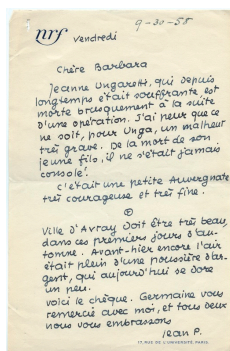 nrf
9-30-58
vendredi
Chère Barbara
Jeanne Ungaretti, qui depuis
longtemps était souffrante, est
morte brusquement à la suite
d'une opération. J'ai peur que ce
ne soit, pour Unga, un malheur
très grave. De la mort de son
jeune fils, il ne s'était jamais
consolé.
c'était une petite Auvergnate
très courageuse et très fine.
Ville d'Avray doit être très beau,
dans ces premiers jours d'au-
tomne. Avant-hier encore l'air
était plein d'une poussière d'ar-
gent, qui aujourd'hui se dore
un peu.
voici le chèque. Germaine vous
remercie avec moi, et tous deux
nous vous embrassons
Jean P.
17, RUE DE L'UNIVERSITÉ, PARIS.